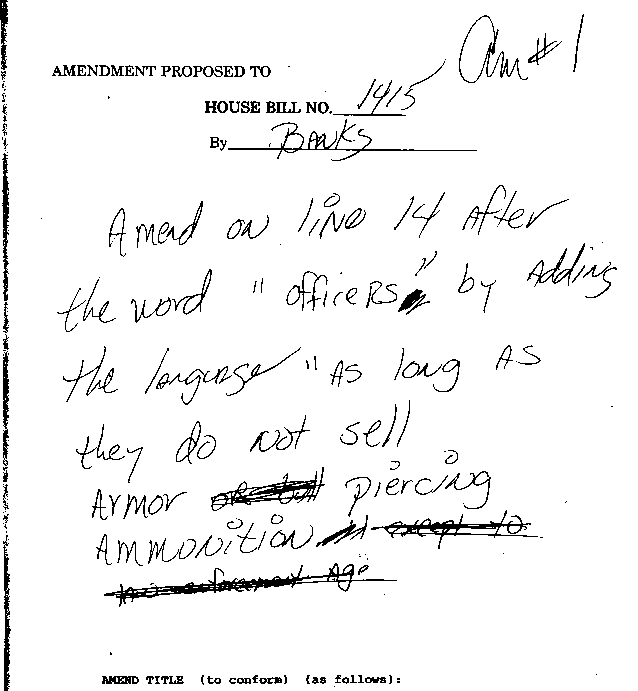 Am # 1
AMENDMENT PROPOSED TO
HOUSE BILL NO. 1415
By BANKS
Amend on line 14 after
the word "officers" by adding
the language "as long as
they do not sell
Armor piercing
Ammonition
AMEND TITLE (to conform) (as follows):